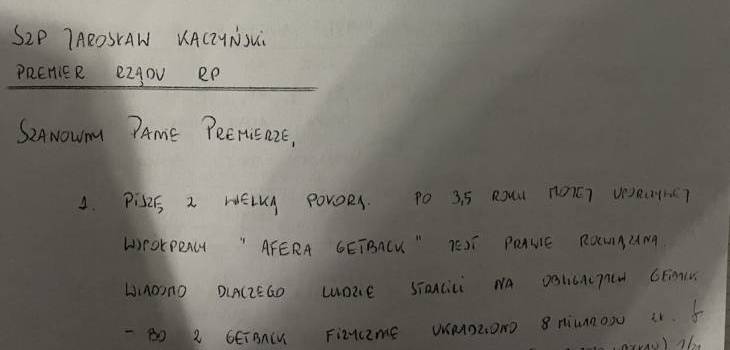 SZP JAROSŁAW KACZYŃSKI
PREMIER RZĄDU RP
SZANOWNY PANIE PREMIERZE,
1. PISZĘ Z WIELKĄ POKORĄ. PO 3,5 ROKU MOJEJ UPORCZYWEJ
WSPÓŁPRACY "AFERA GETBACK" JEST PRAWIE ROZWIĄZANA.
WIADOMO DLACZEGO LUDZIE STRACILI NA OBLIGACJACH GETBACK
- BO Z GETBACK FIZYCZNIE UKRADZIONO 8 MILIARDÓW ZŁ.